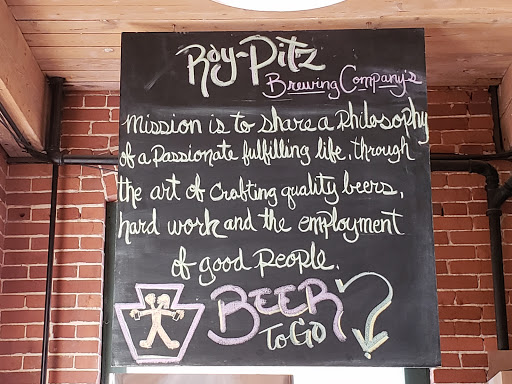 Roy-Pitz
Brewing Company's
mission is to share a Philosophy
of a Passionate fulfilling life, through
the art of crafting quality beers,
hard work and the employment
of good People.
BEER ?
To GO